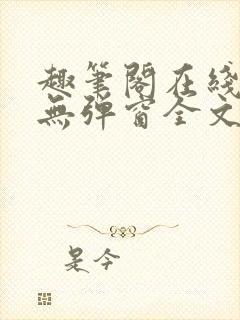 趣筆閣在綫
無弹窗全文
是今